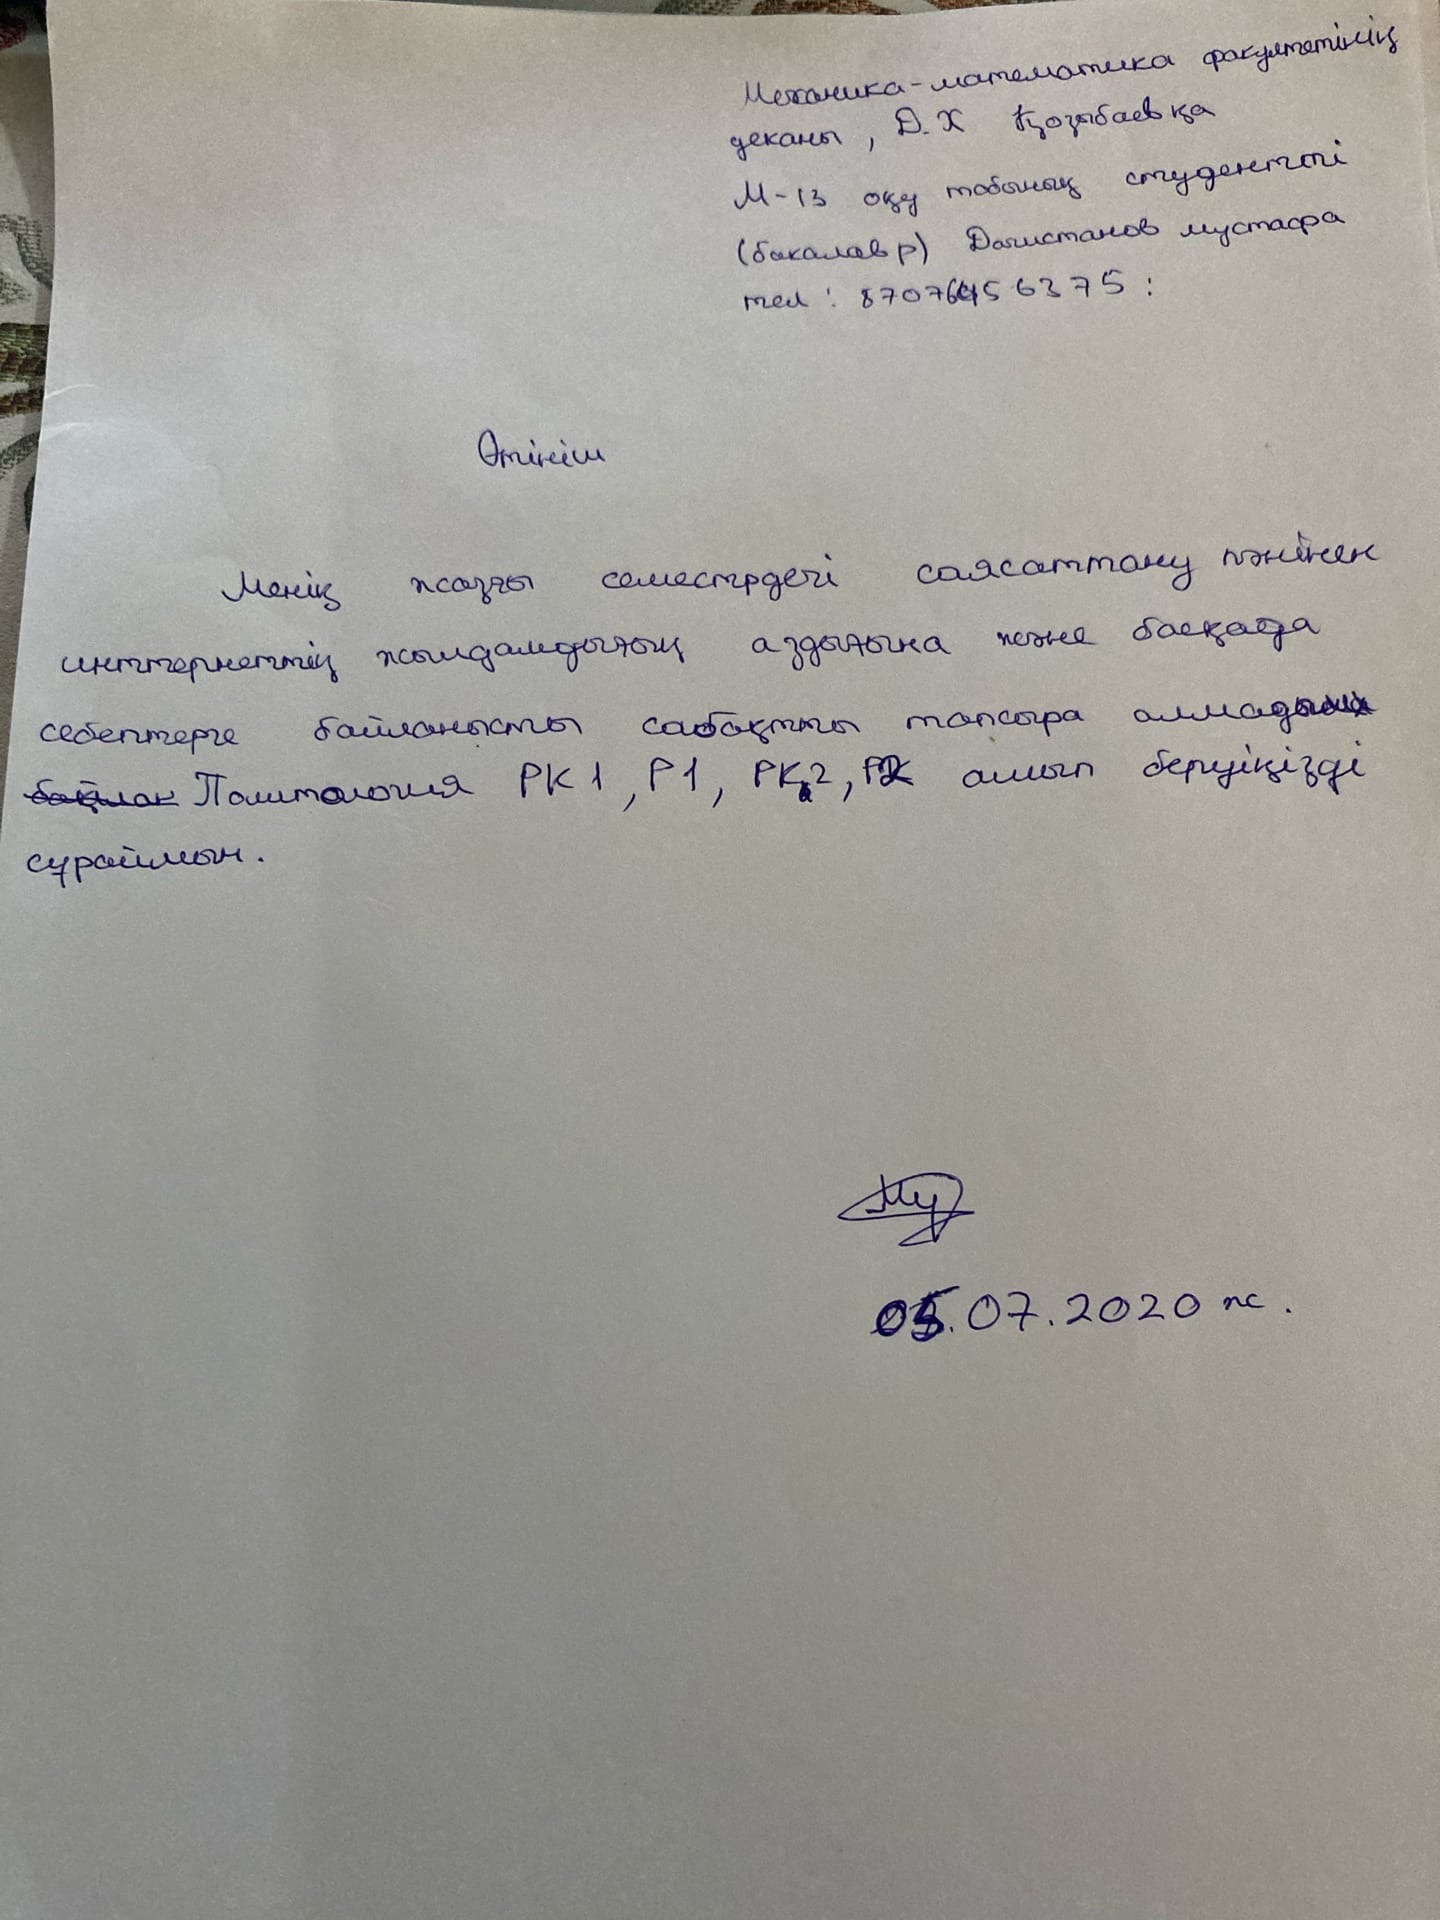 Механика-математика факультетінің
деканы, Д.Х Қозыбаевқа
М-13 оқу тобының студентті
(бакалавр) Дагистанов мустафа
тел: 87076456375:
Өтініш
Менің жазғы семестрдегі саясаттану пәнінен
инттернеттің жылдамдығың аздығына және басқада
себептерге байланысты сабақтты тапсыра алмадым
Политология РК1, Р1, РК2, алып беруіңізді
сұраймын.
05.07.2020 ж.